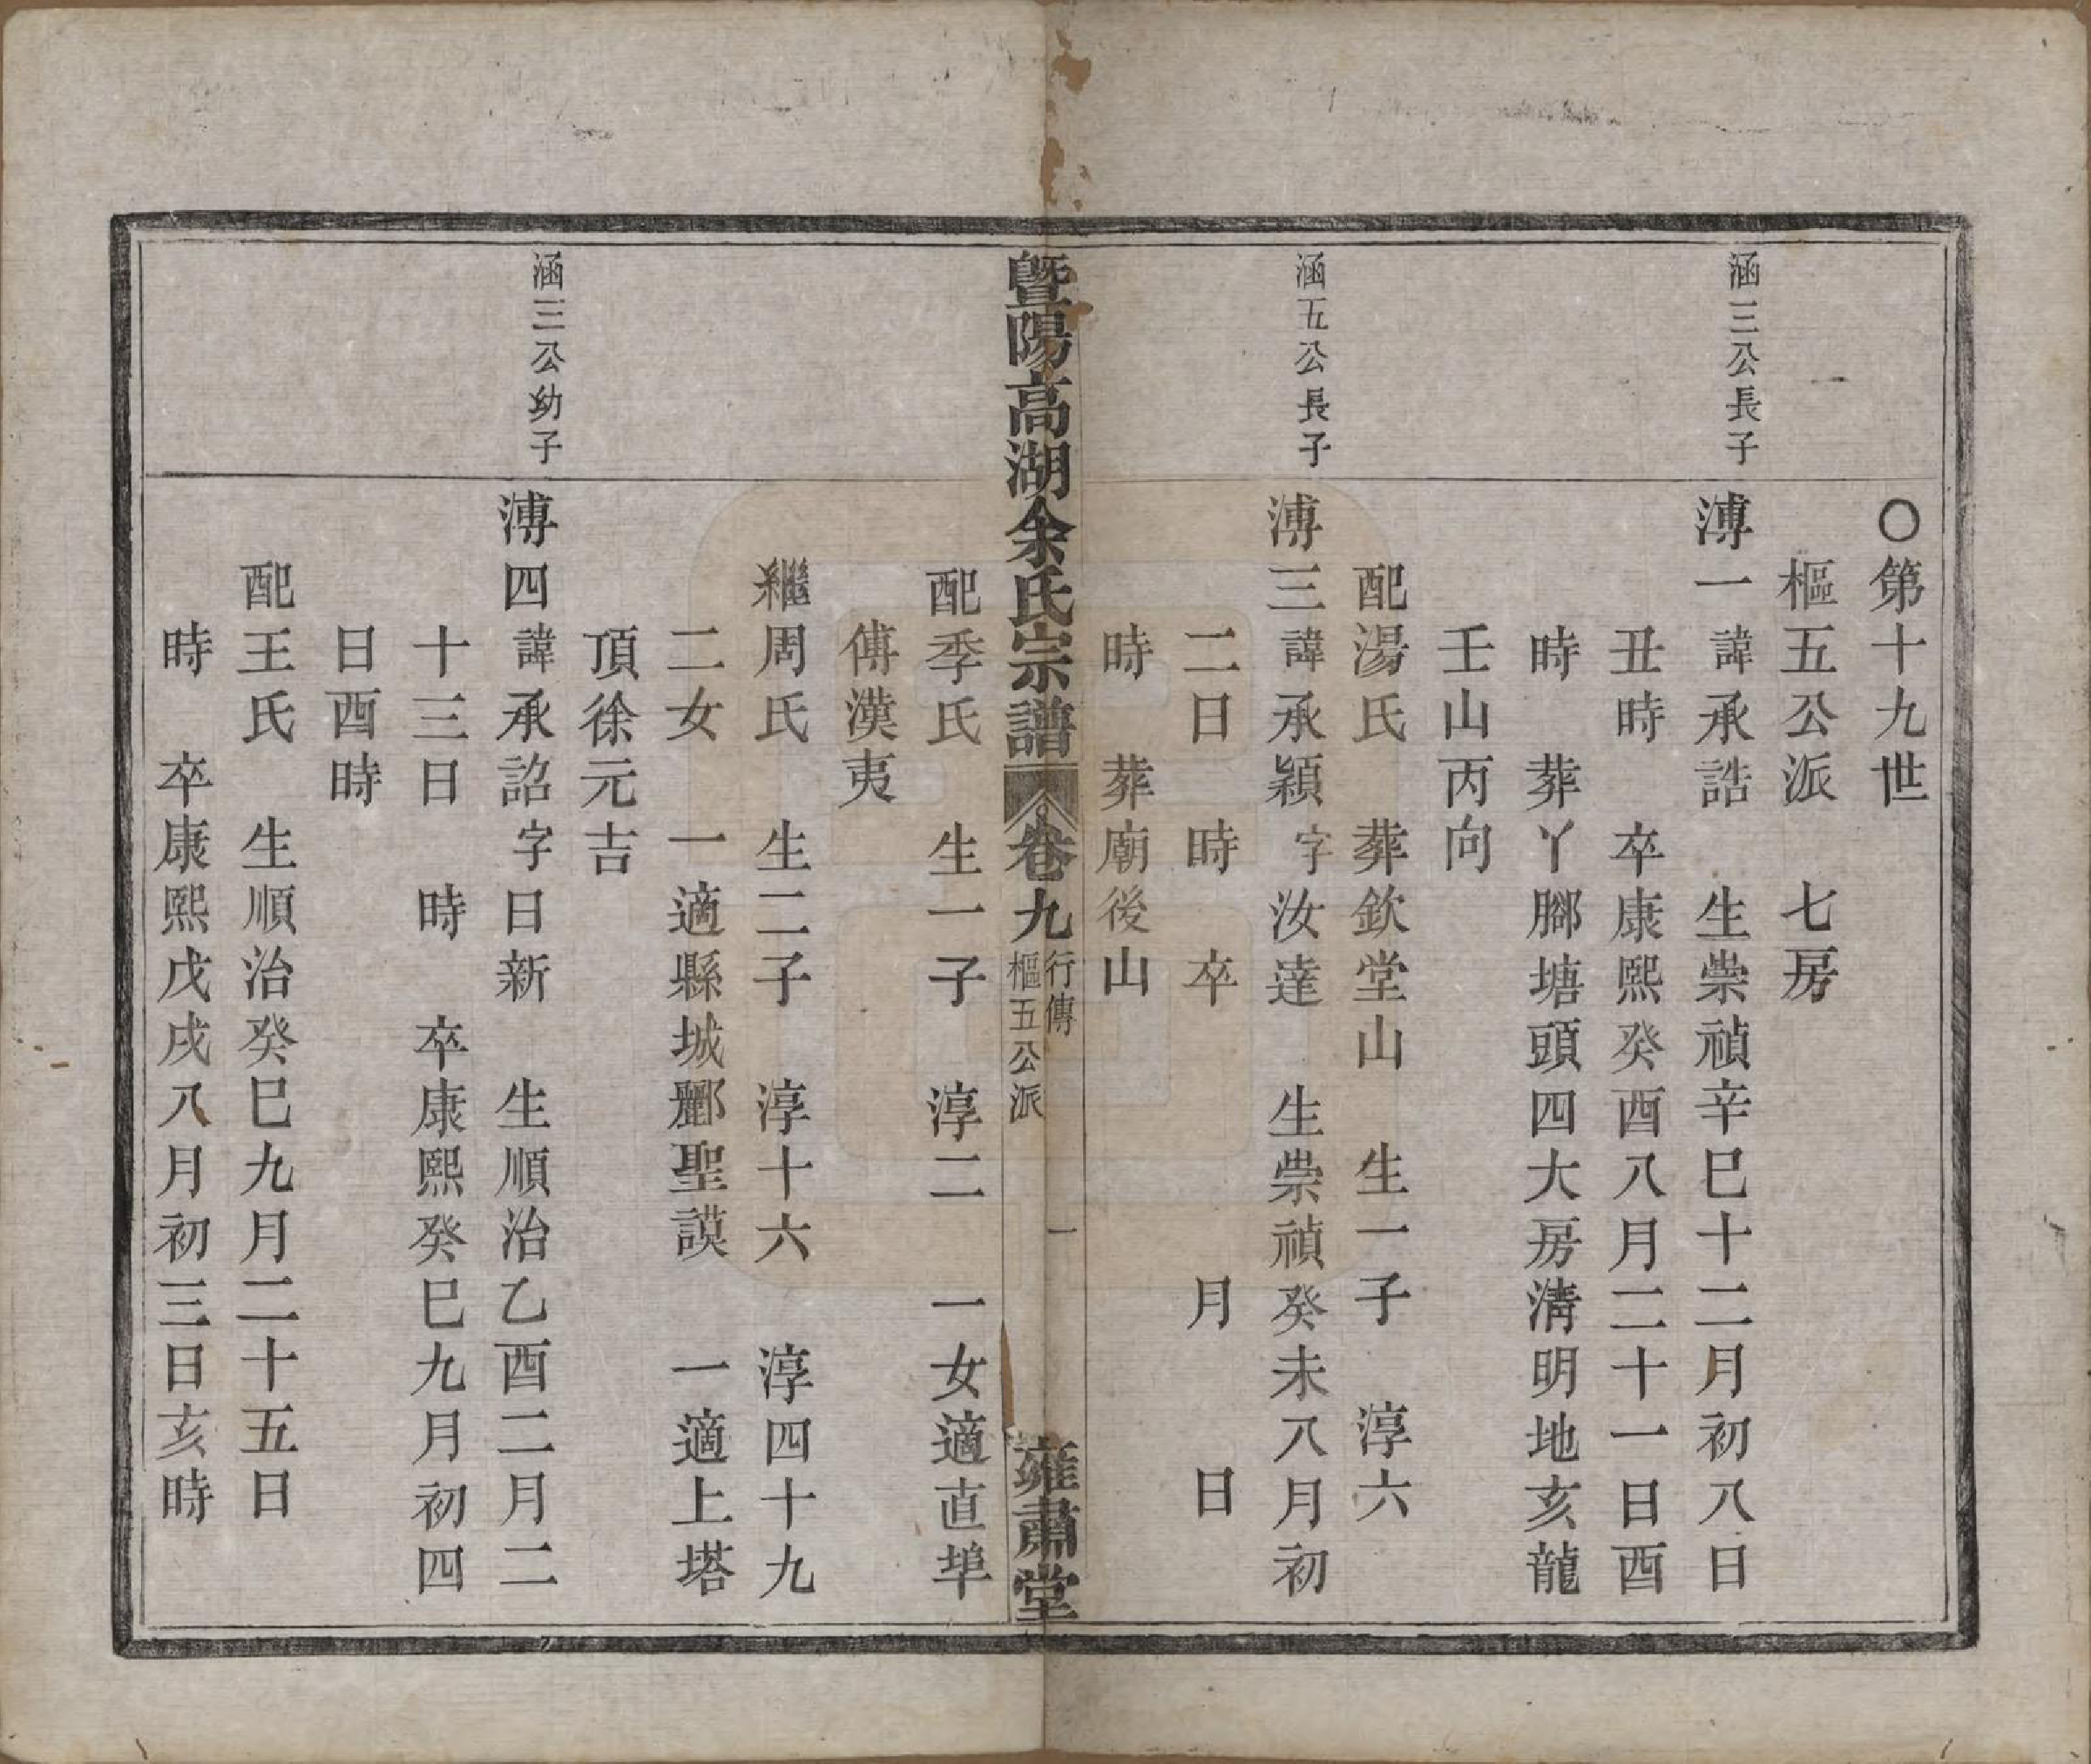 〇第十九世
樞五公派　七房
涵三公長子
溥一諱承誥　生崇禎辛巳十二月初八日
丑時　卒康熙癸酉八月二十一日酉
時　葬丫腳塘頭四大房淸明地亥龍
壬山丙向
配湯氏　葬欽堂山　生一子　淳六
涵五公長子
溥三諱承穎字汝達　生崇禎癸未八月初
二日　時　卒　月　日
時　葬廟後山
暨陽高湖余氏宗譜　卷九　行傳　樞五公派　一　雍肅堂
配季氏　生一子　淳二　一女適直埠
傅漢夷
繼周氏　生二子　淳十六　淳四十九
二女　一適縣城酈聖謨　一適上塔
頂徐元吉
涵三公幼子
溥四諱承詔字日新　生順治乙酉二月二
十三日　時　卒康熙癸巳九月初四
日酉時
配王氏　生順治癸巳九月二十五日
時　卒康熙戊戌八月初三日亥時